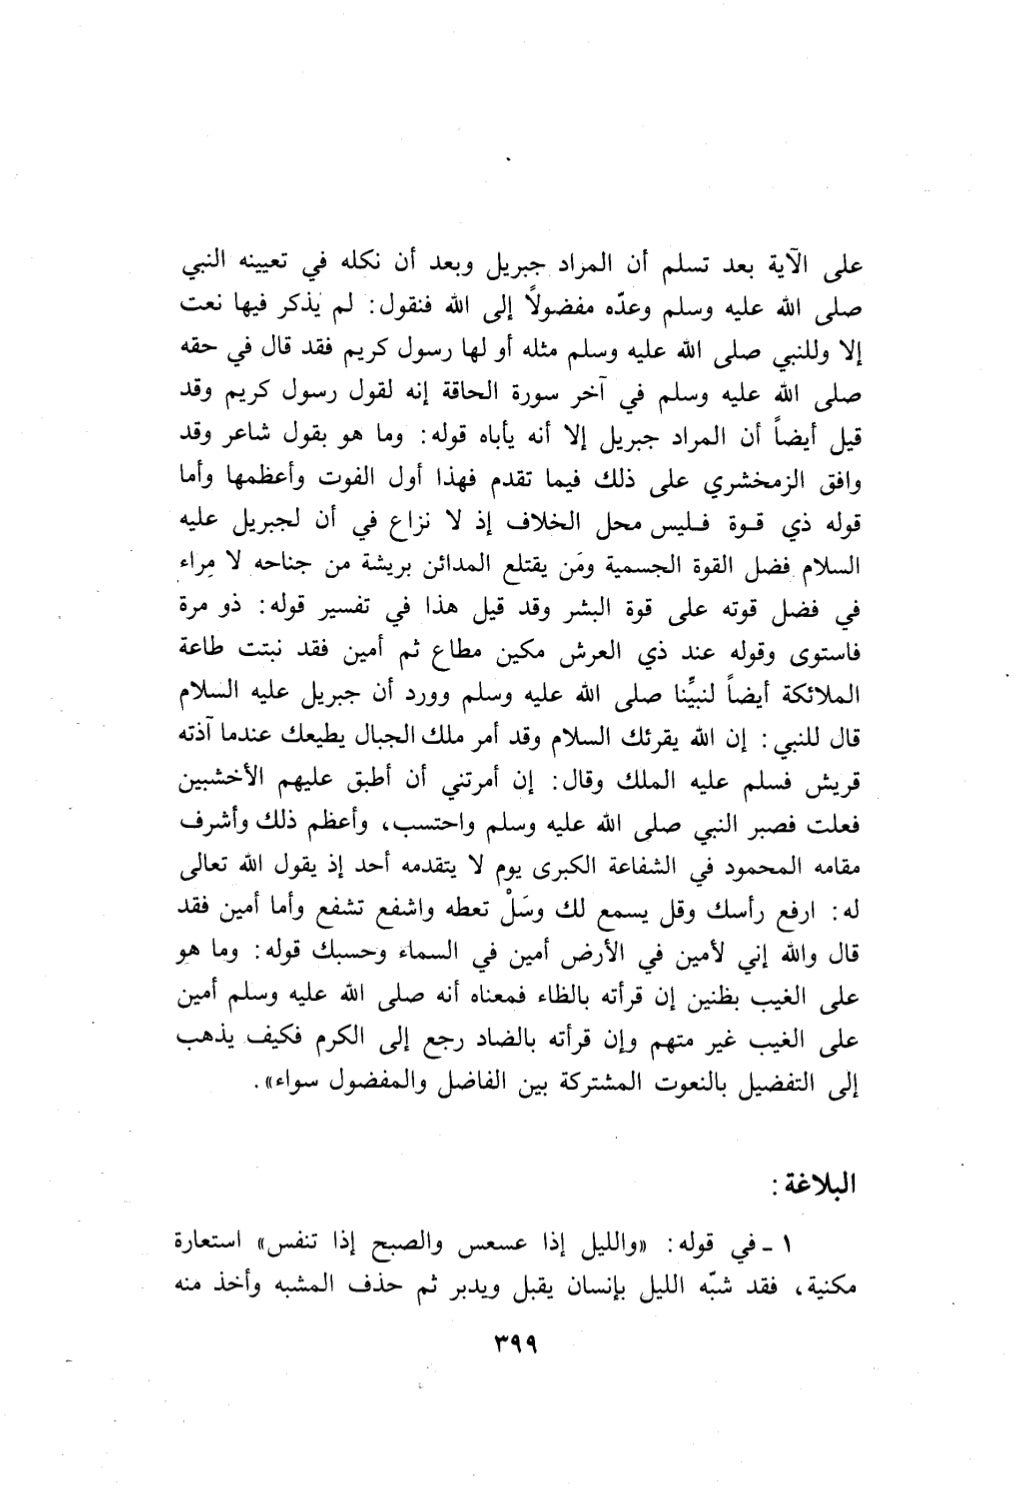 على الآية بعد تسلم أن المراد جبريل وبعد أن نكله في تعيينه النبي
صلى الله عليه وسلم وعدّه مفضولاً إلى الله فنقول: لم يذكر فيها نعت
إلا وللنبي صلى الله عليه وسلم مثله أو لها رسول كريم فقد قال في حقه
صلى الله عليه وسلم في آخر سورة الحاقة إنه لقول رسول كريم وقد
قيل أيضاً أن المراد جبريل إلا أنه يأباه قوله: وما هو بقول شاعر وقد
وافق الزمخشري على ذلك فيما تقدم فهذا أول الفوت وأعظمها وأما
قوله ذي قوة فليس محل الخلاف إذ لا نزاع في أن لجبريل عليه
السلام فضل القوة الجسمية ومَن يقتلع المدائن بريشة من جناحه لا مِراء
في فضل قوته على قوة البشر وقد قيل هذا في تفسير قوله: ذو مرة
فاستوى وقوله عند ذي العرش مكين مطاع ثم أمين فقد نبتت طاعة
الملائكة أيضاً لنبيِّنا صلى الله عليه وسلم وورد أن جبريل عليه السلام
قال للنبي: إن الله يقرئك السلام وقد أمر ملك الجبال يطيعك عندما آذته
قريش فسلم عليه الملك وقال: إن أمرتني أن أطبق عليهم الأخشبين
فعلت فصبر النبي صلى الله عليه وسلم واحتسب، وأعظم ذلك وأشرف
مقامه المحمود في الشفاعة الكبرى يوم لا يتقدمه أحد إذ يقول الله تعالى
له: ارفع رأسك وقل يسمع لك وسَلْ تعطه واشفع تشفع وأما أمين فقد
قال والله إني لأمين في الأرض أمين في السماء وحسبك قوله: وما هو
على الغيب بظنين إن قرأته بالظاء فمعناه أنه صلى الله عليه وسلم أمين
على الغيب غير متهم وإن قرأته بالضاد رجع إلى الكرم فكيف يذهب
إلى التفضيل بالنعوت المشتركة بين الفاضل والمفضول سواء».
البلاغة:
١ - في قوله: «والليل إذا عسعس والصبح إذا تنفس» استعارة
مكنية، فقد شبّه الليل بإنسان يقبل ويدبر ثم حذف المشبه وأخذ منه
٣٩٩